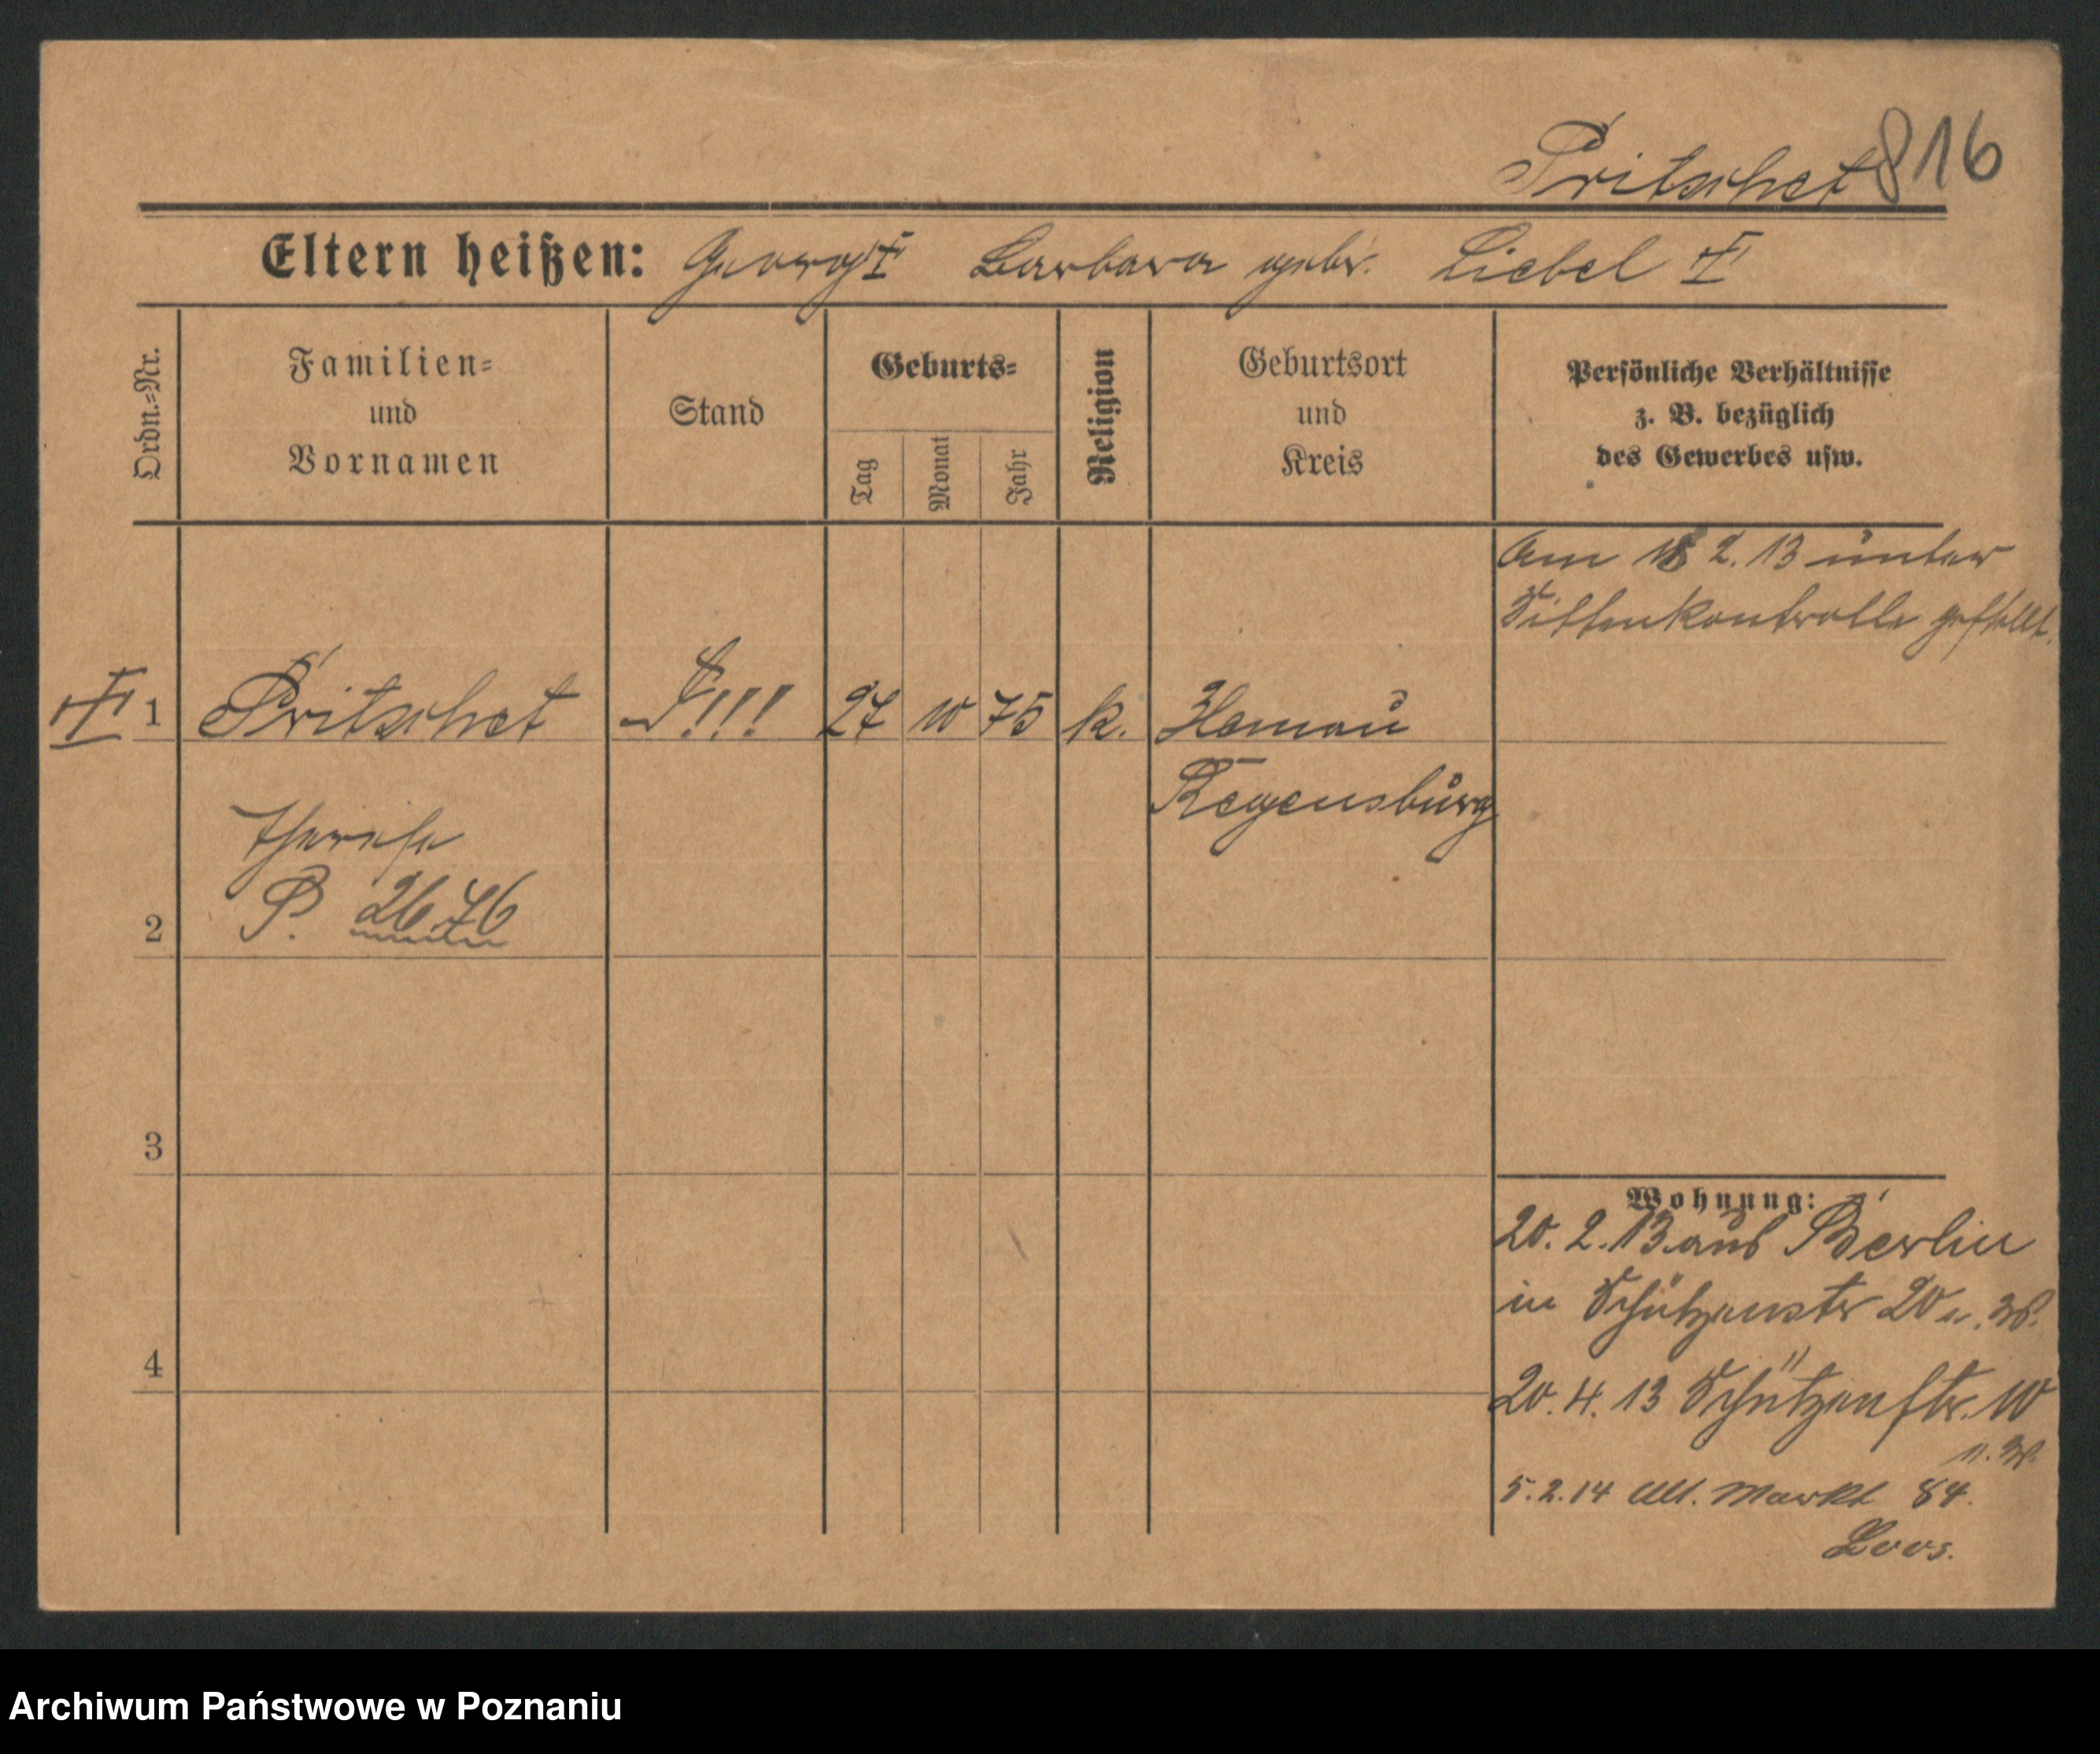 Pritschet 816
Eltern heißen: Georg Barbara gebr. Liebel
Ordn.=Nr.
Familien=
und
Vornamen
Stand
Geburts=
Tag
Monat
Jahr
Religion
Geburtsort
und
Kreis
Persönliche Verhältnisse
z. B. bezüglich
des Gewerbes usw.
Am 18 2. 13 unter
Sittenkontrolle gestellt.
1 Pritschet !!! 27 10 75 k. Hemau
Regensburg
Therese
2 P. 2676
3
4
Wohnung:
20. 2. 13 aus Berlin
in Schützenstr 20 b. W.
20. 4. 13 Schützenstr. 10
b. W.
5. 2. 14 Alt. Markt 84.
Loos.
Archiwum Państwowe w Poznaniu